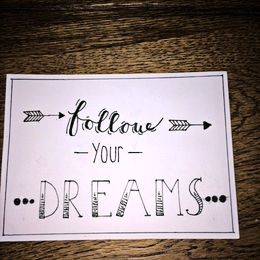 follow
- Your -
DREAMS